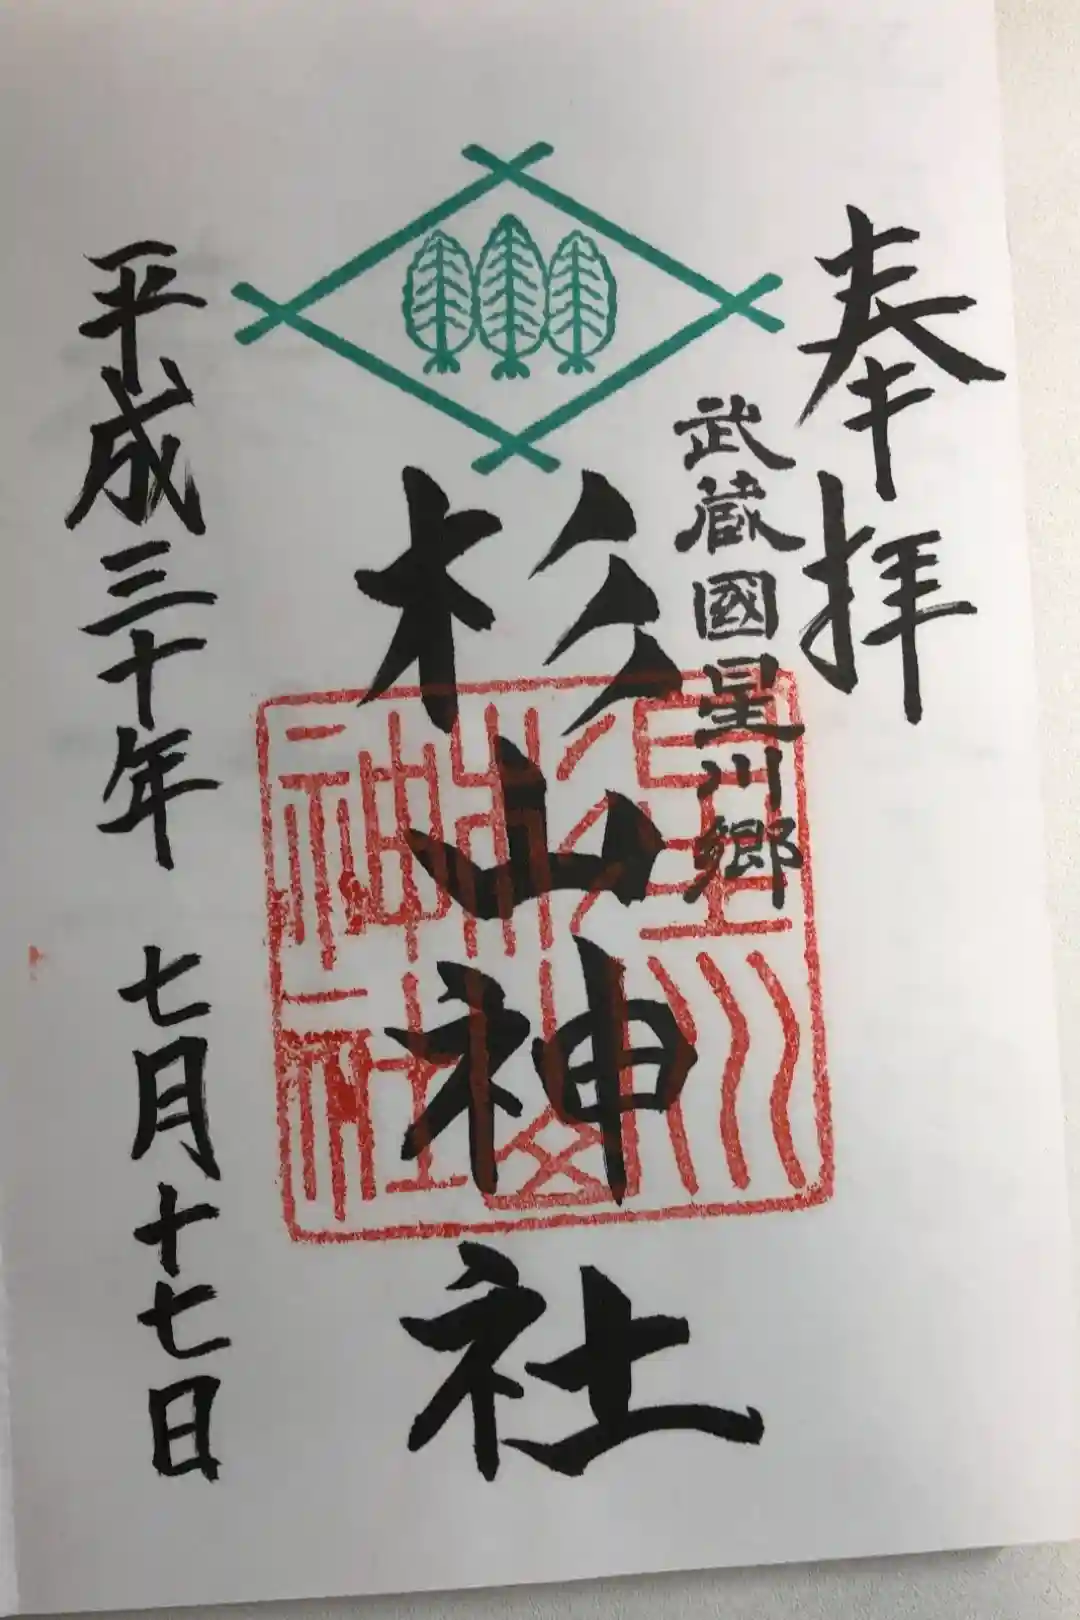 奉拝
武蔵國星川郷
杉山神社
星川
杉山
神社
平成三十年 七月十七日